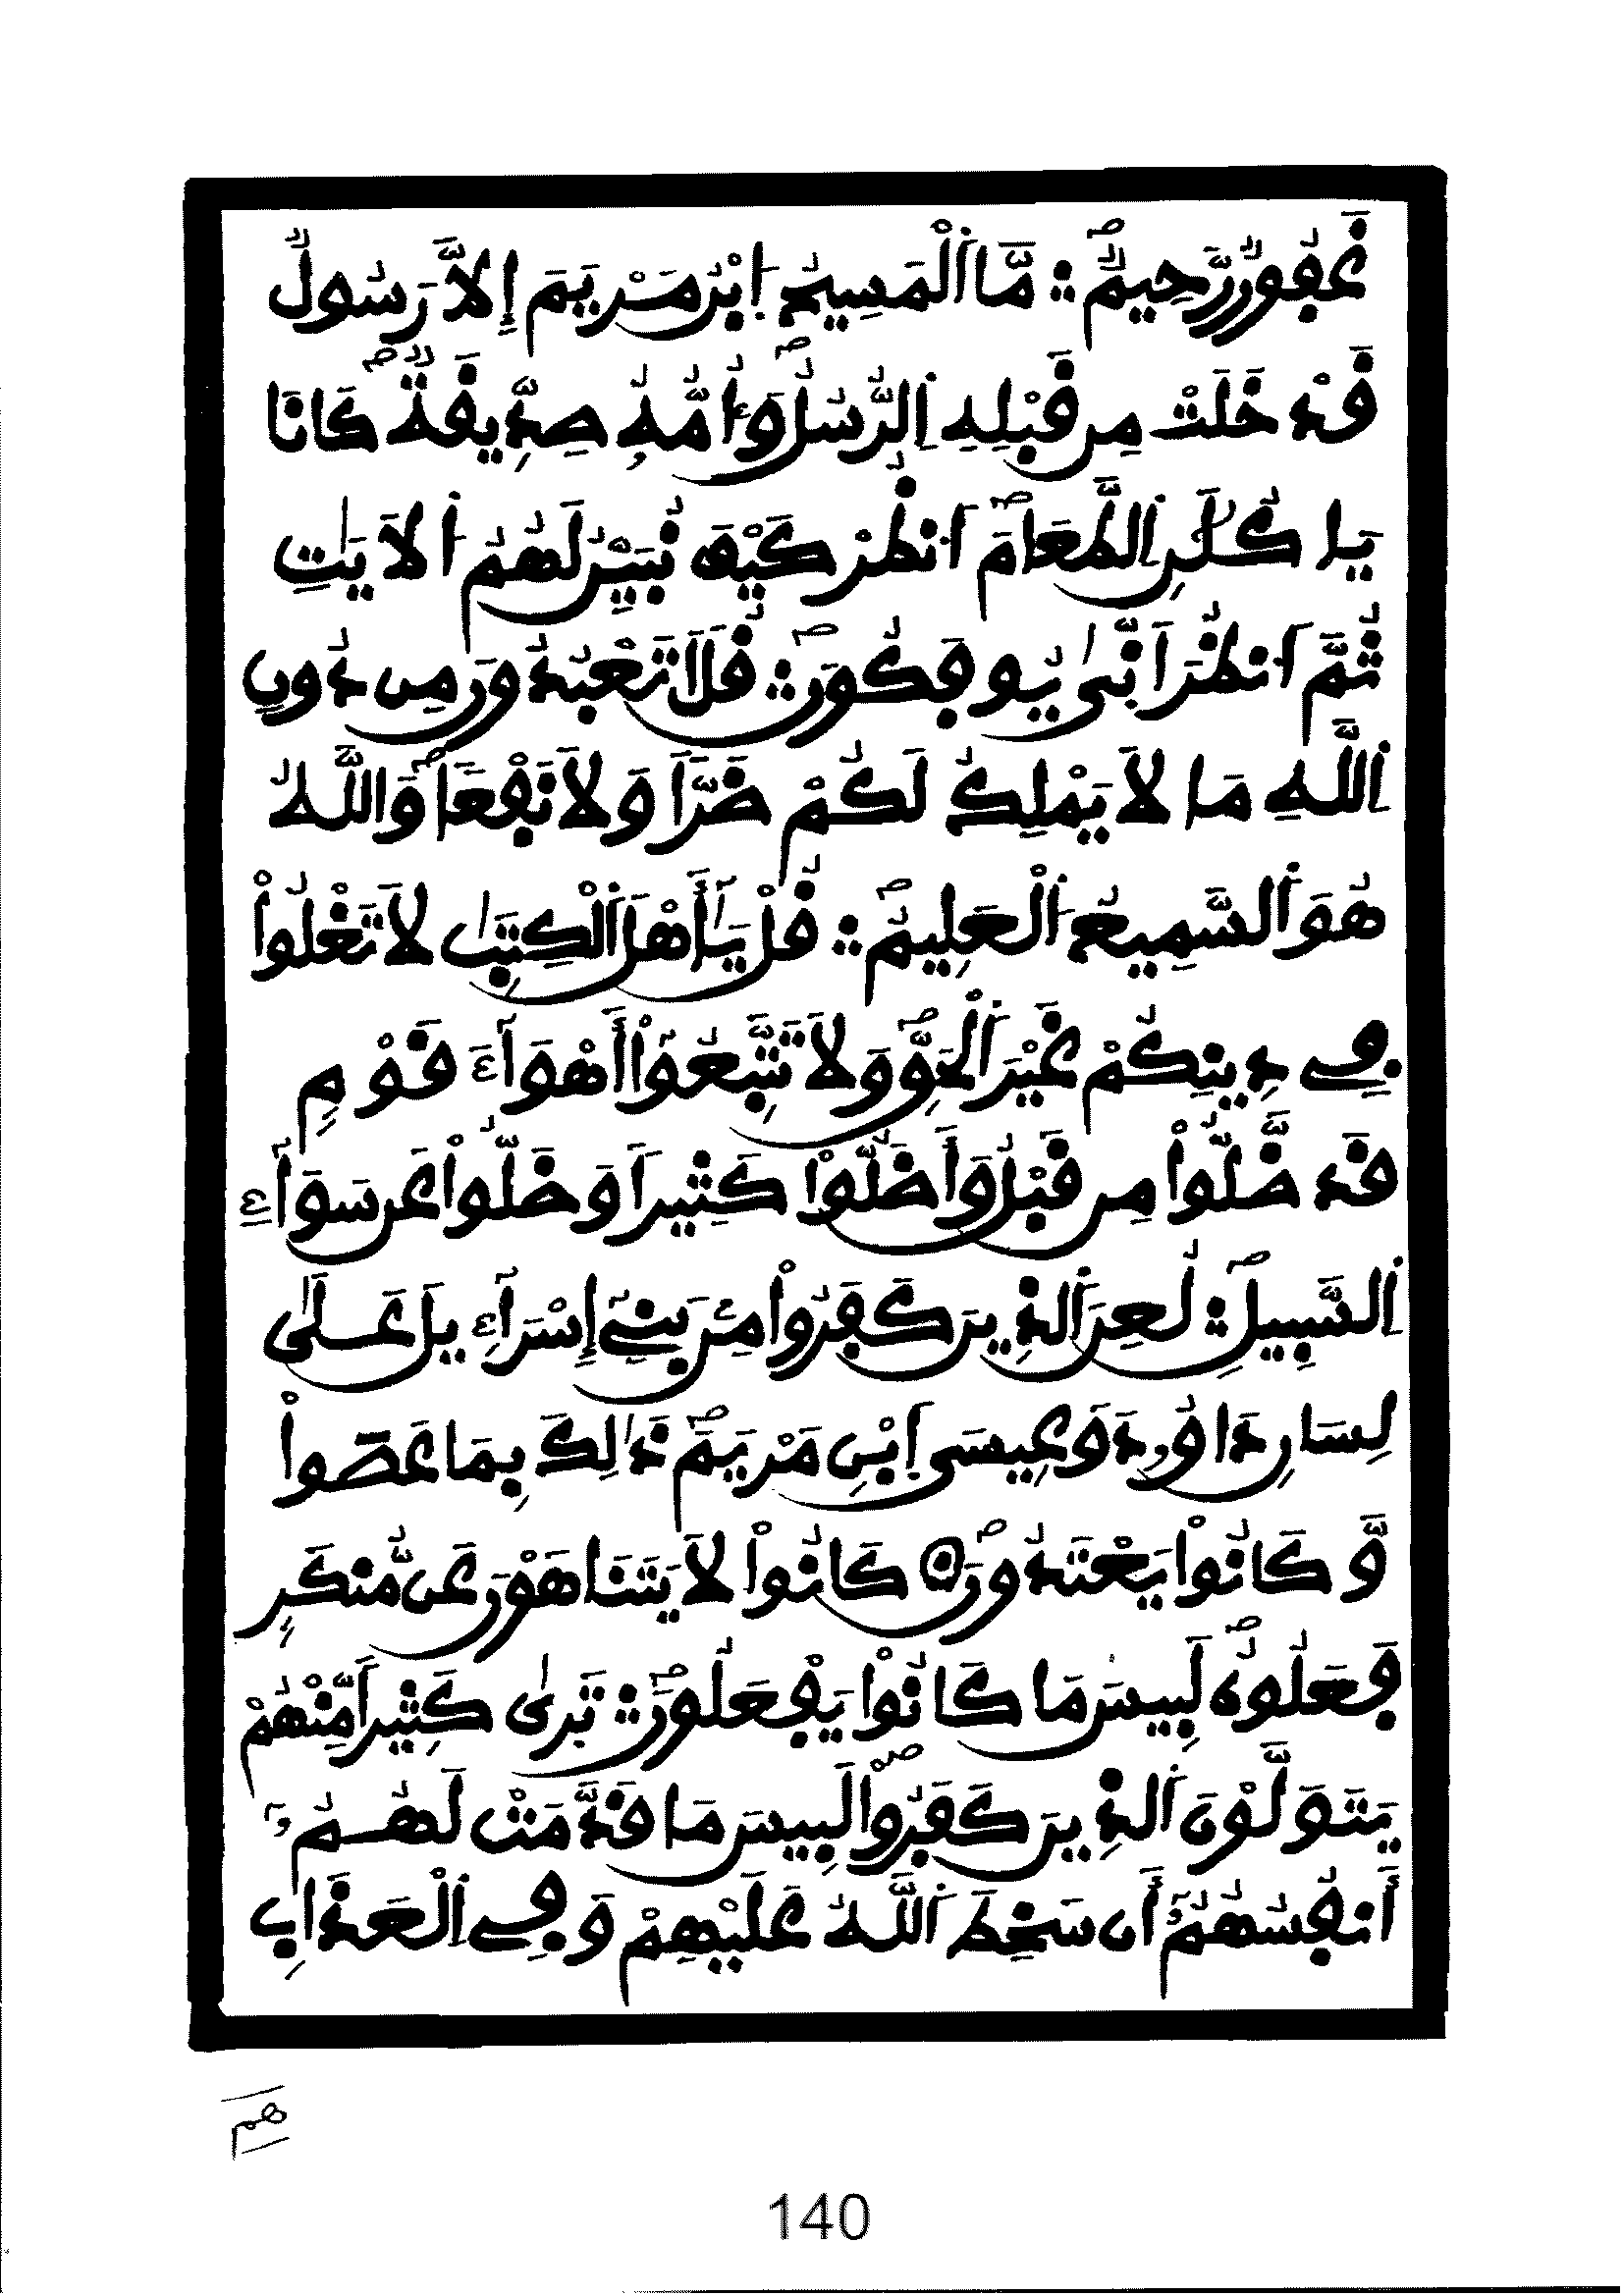 غَفُورٌ رَّحِيمٌ ۞ مَّا اَ۬لْمَسِيحُ اُ۪بْنُ مَرْيَمَ إِلَّا رَسُولٌ
قَدْ خَلَتْ مِن قَبْلِهِ اِ۬لرُّسُلُ وَأُمُّهُۥ صِدِّيقَةٌ كَانَا
يَاكُلَٰنِ اِ۬لطَّعَامَ اَ۟نظُرْ كَيْفَ نُبَيِّنُ لَهُمُ اُ۬لَايَٰتِ
ثُمَّ اَ۟نظُرَ اَنّ۪يٰ يُوفَكُونَ ۞ قُلَ اَتَعْبُدُونَ مِن دُونِ
اِ۬للَّهِ مَا لَا يَمْلِكُ لَكُمْ ضَرّاَ وَلَا نَفْعاَ وَاللَّهُ
هُوَ اَ۬لسَّمِيعُ اُ۬لْعَلِيمُ ۞ قُلْ يَٰٓأَهْلَ اَ۬لْكِتَٰبِ لَا تَغْلُواْ
فِي دِينِكُمْ غَيْرَ اَ۬لْحَقِّ وَلَا تَتَّبِعُوٓاْ أَهْوَآءَ قَوْمٖ
قَد ضَّلُّواْ مِن قَبْلُ وَأَضَلُّواْ كَثِيراَ وَضَلُّواْ عَن سَوَآءِ
اِ۬لسَّبِيلِ ۞ لُعِنَ اَ۬لذِينَ كَفَرُواْ مِنۢ بَنِےٓ إِسْرَآءِيلَ عَلَىٰ
لِسَانِ دَاوُۥدَ وَعِيسَى اَ۪بْنِ مَرْيَمَ ذَٰلِكَ بِمَا عَصَواْ
وَّكَانُواْ يَعْتَدُونَ ۞ كَانُواْ لَا يَتَنَاهَوْنَ عَن مُّنكَرٖ
فَعَلُوهُ لَبِيسَ مَا كَانُواْ يَفْعَلُونَ ۞ تَر۪يٰ كَثِيراَ مِّنْهُمْ
يَتَوَلَّوْنَ اَ۬لذِينَ كَفَرُواْ لَبِيسَ مَا قَدَّمَتْ لَهُمُۥٓ
أَنفُسُهُمُۥٓ أَن سَخِطَ اَ۬للَّهُ عَلَيْهِمْ وَفِي اِ۬لْعَذَابِ
هم
140